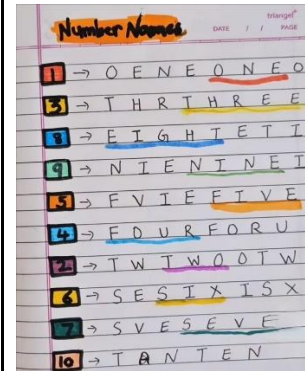 triangel
Number Names
DATE / / PAGE
1 → O E N E O N E O
3 → T H R T H R E E
8 → E I G H T E T I
9 → N I E N I N E I
5 → F V I E F I V E
4 → F O U R F O R U
2 → T W T W O O T W
6 → S E S I X I S X
7 → S V E S E V E
10 → T A N T E N